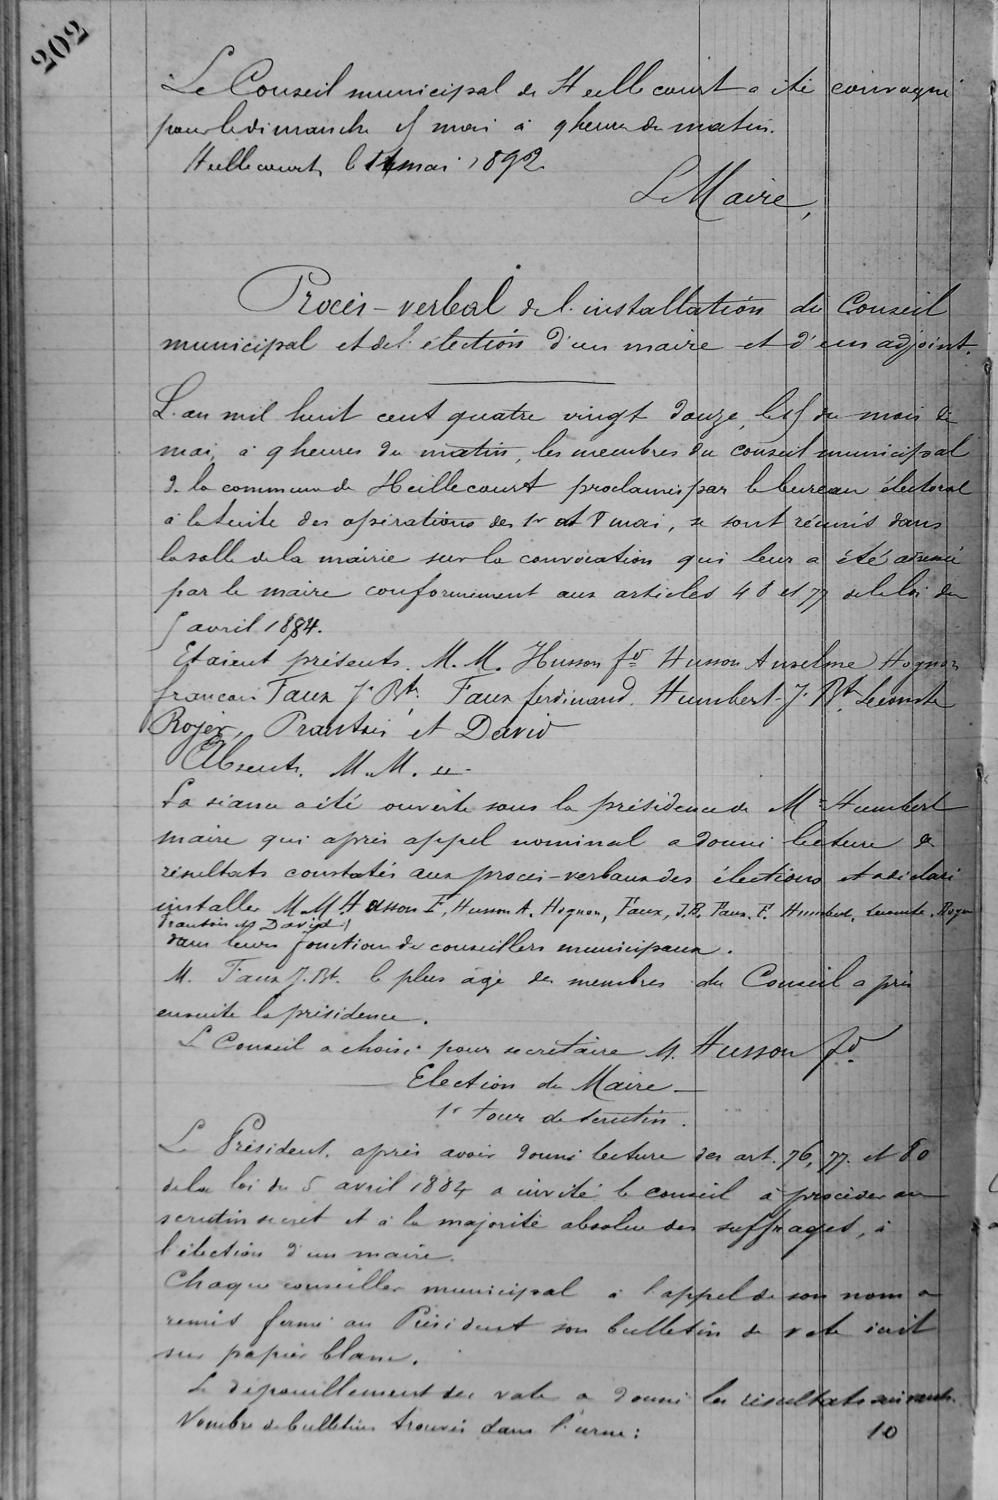 202
Le Conseil municipal de Heillecourt a été convoqué
pour le dimanche 15 mai à 9 heures du matin.
Heillecourt, le mai 1892
Le Maire,
Procès-verbal de l'installation du Conseil
municipal et de l'élection d'un maire et d'un adjoint.
L'an mil huit cent quatre vingt douze, le 15 du mois de
mai, à 9 heures du matin, les membres du conseil municipal
de la commune de Heillecourt proclamés par le bureau électoral
à la suite des opérations des 1er et 8 mai, se sont réunis dans
la salle de la mairie sur la convocation qui leur a été adressé
par le maire conformément aux articles 48 et 77 de la loi du
5 avril 1884.
Etaient présents. M.M. Husson fd Husson Anselme Hognon
francois Faux J. Bt, Faux ferdinand, Humbert J. Bt, Lecomte
Royer, Prautois et David
Absents. M.M.
La séance a été ouverte sous la présidence de Mr Humbert
maire qui après appel nominal a donné lecture de
résultats constatés aux procès-verbaux des élections et a déclaré
installer M.M. Husson F, Husson A. Hognon, Faux, J.B. Faux. F. Humbert, Lecomte, Royer
Prautois et David
dans leurs fonctions de conseillers municipaux.
M. Faux J. Bt. le plus âgé des membres du Conseil a pris
ensuite la présidence.
Le Conseil a choisi pour secrétaire M. Husson fd
Election du Maire
1er tour de scrutin.
Le Président, après avoir donné lecture des art. 76, 77 et 80
de la loi du 5 avril 1884 a invité le conseil à procéder au
scrutin secret et à la majorité absolue des suffrages, à
l'élection d'un maire.
Chaque conseiller municipal à l'appel de son nom a
remis fermé au Président son bulletin de vote écrit
sur papier blanc.
Le dépouillement des vote a donné les résultats suivants.
Nombre de bulletins trouvés dans l'urne : 10